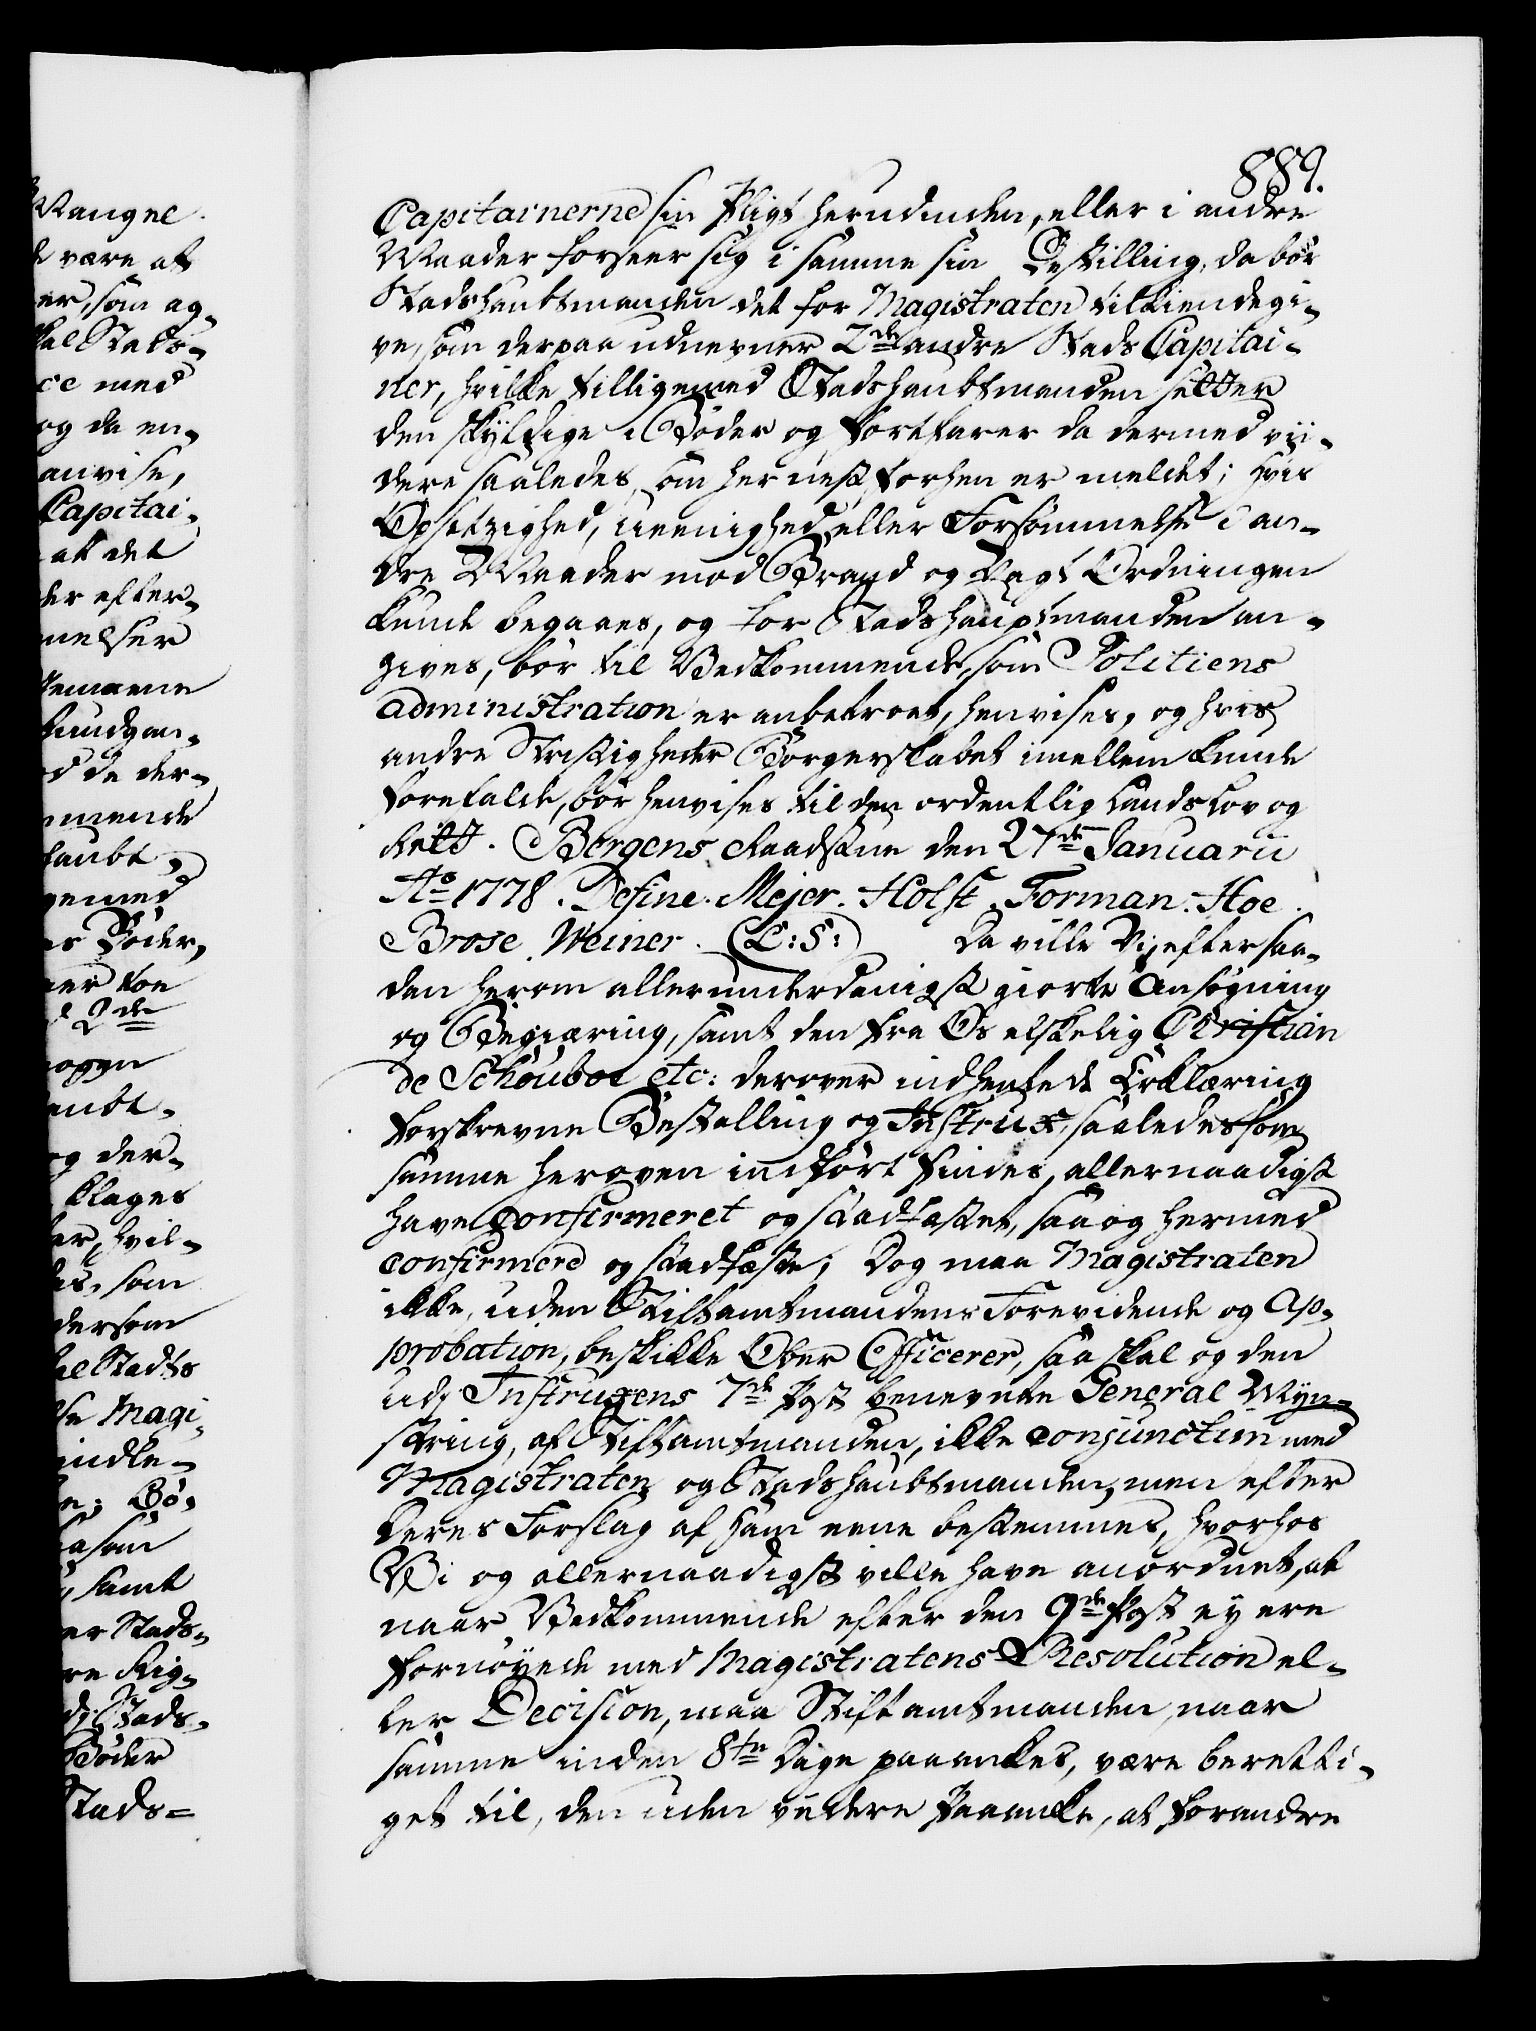 889.
Capitainerne sin Pligt herudinden, eller i andre
Maader forseer sig i samme sin Bestilling, da bør
Stadshaubtmanden det for Magistraten tilkiendegi-
ve, som derpaa udnevner 2de andre Stads Capitai-
ner, hvilke tilligemed Stadshaubtmanden setter
den skyldige i Bøder og fortfarer da dermed vii-
dere saaledes, som her nest forhen er meldet; hvis
Opsetzighed, ueenighed eller Forsømmelse i an-
dre Maader mod Brand og Vagt Ordningen
kunde begaaes, og for Stadshauptmanden an-
gives, bør til Vedkommende, som Politiens
administration er anbetroet, henvises, og hvis
andre Stridigheder Borgerskabet imellem kunde
forefalde, bør henvises til den ordentlig Landslov og
Rett. Bergens Raadstue den 27de Januarii
Ao 1778. Define. Mejer. Holst. Forman. Hoe.
Brose. Weiner. (L:S:) Da ville Vi, efter saa-
dan herom allerunderdanigst giorte Ansøgning
og Begiæring, samt den fra Os elskelig Christian
de Schouboe etc: derover indhentede Erklæring
forskrevne Bestalling og Instrux, saaledes som
samme heroven indført findes, allernaadigst
have Confirmeret og stadfæstet, saa og hermed
confirmere og stadfæste; Dog maa Magistraten
ikke, uden Stiftamtmandens Forevidende og Ap-
probation, beskikke Ober Officerer, saa skal og den
udj Instruxens 7de Post benevnte General Myn-
string, af Stiftamtmanden, ikke conjunctim med
Magistraten og Stadshaubtmanden, men efter
deres Forslag af ham eene bestemmes, hvorhos
Vi og allernaadigst ville have anordnet, at
naar Vedkommende efter den 9de Post ey ere
fornøyede med Magistratens Resolution el-
ler Decision, maa Stiftamtmanden, naar
samme inden 8te Dage paaankes, være beretti-
get til, den uden videre Paaanke, at forandre